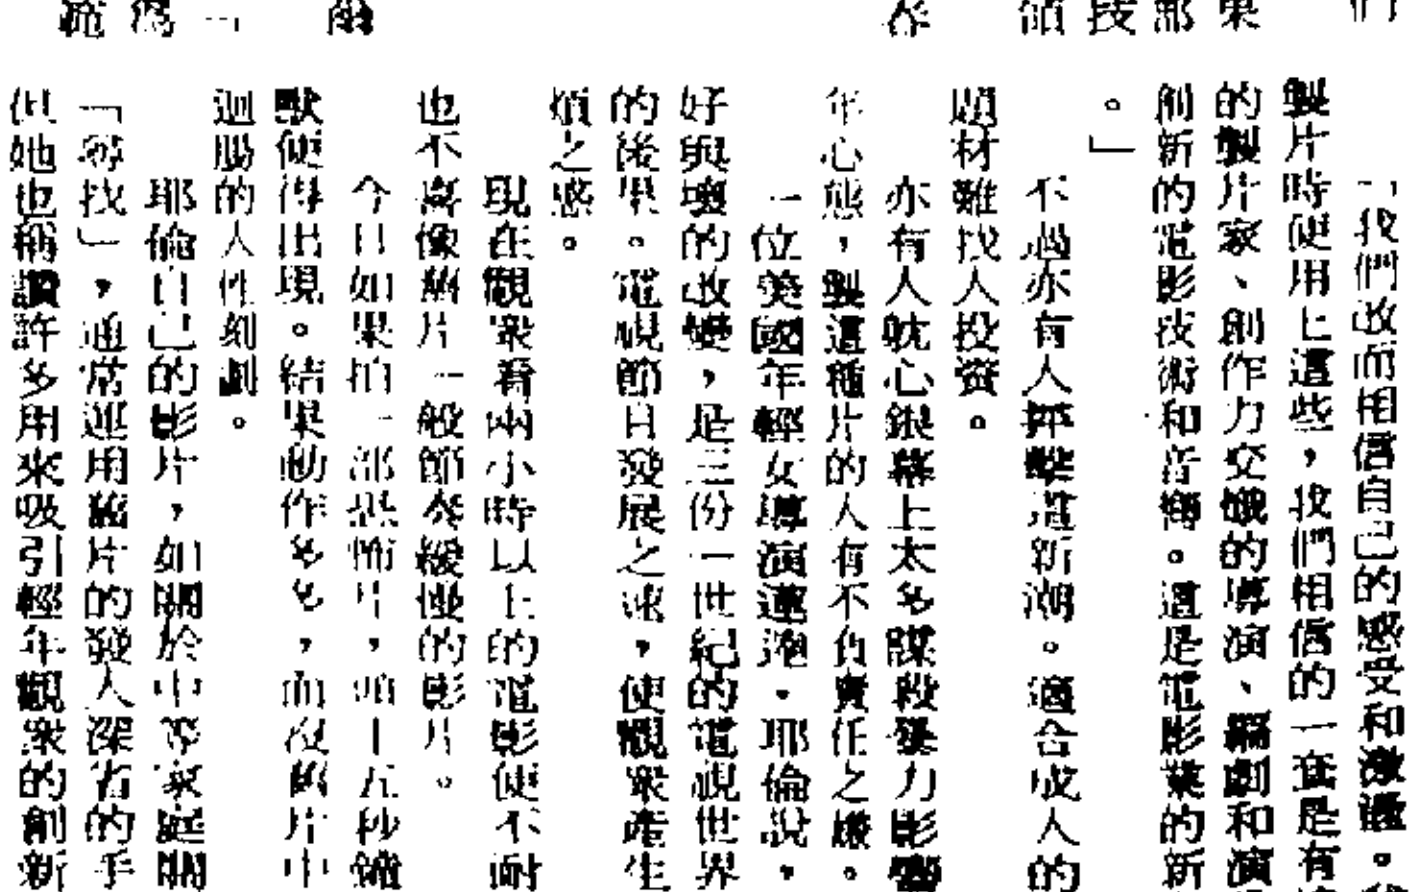 們
果
部
技
領
存
爾
「
為
範
「我們改而相信自己的感受和激
製片時便用上這些，我們相信的一套是有
的製片家、創作力交熾的導演、編劇和演
創新的電影技術和音響。這是電影業的新
。」
不過亦有人抨擊這新潮。適合成人的
題材難找人投資。
亦有人耽心銀幕上太多謀殺暴力影響
年心態，製這種片的人有不負責任之嫌。
一位美國年輕女導演蓮達·耶倫說，
好與壞的改變，是三份一世紀的電視世界
的後果。電視節目發展之速，使觀衆產生
煩之感。
現在觀衆看兩小時以上的電影便不耐
也不喜像舊片一般節奏緩慢的影片。
今日如果拍一部恐怖片，頭十五秒鐘
獸便得出現。結果動作多多，而沒舊片中
迴腸的人性刻劃。
耶倫自己的影片，如關於中等家庭關
「尋找」，通常運用舊片的發人深省的手
但她也稱讚許多用來吸引輕年觀衆的創新